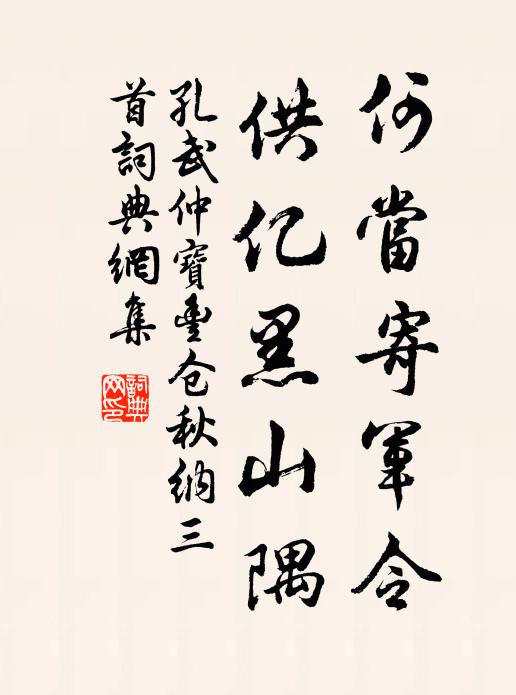 何當寄軍令
供亿黑山隅
孔武仲寶豐仓秋納三
首詞典網集
詞典网印